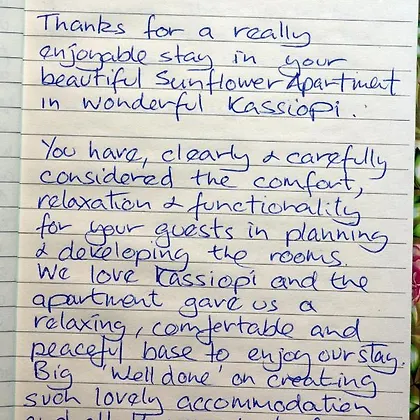 Thanks for a really
enjoyable stay in your
beautiful Sunflower Apartment
in wonderful Kassiopi.
You have, clearly & carefully
considered the comfort,
relaxation & functionality
for your guests in planning
& developing the rooms.
We love Kassiopi and the
apartment gave us a
relaxing, comfortable and
peaceful base to enjoy our stay.
Big 'Well done' on creating
such lovely accommodation